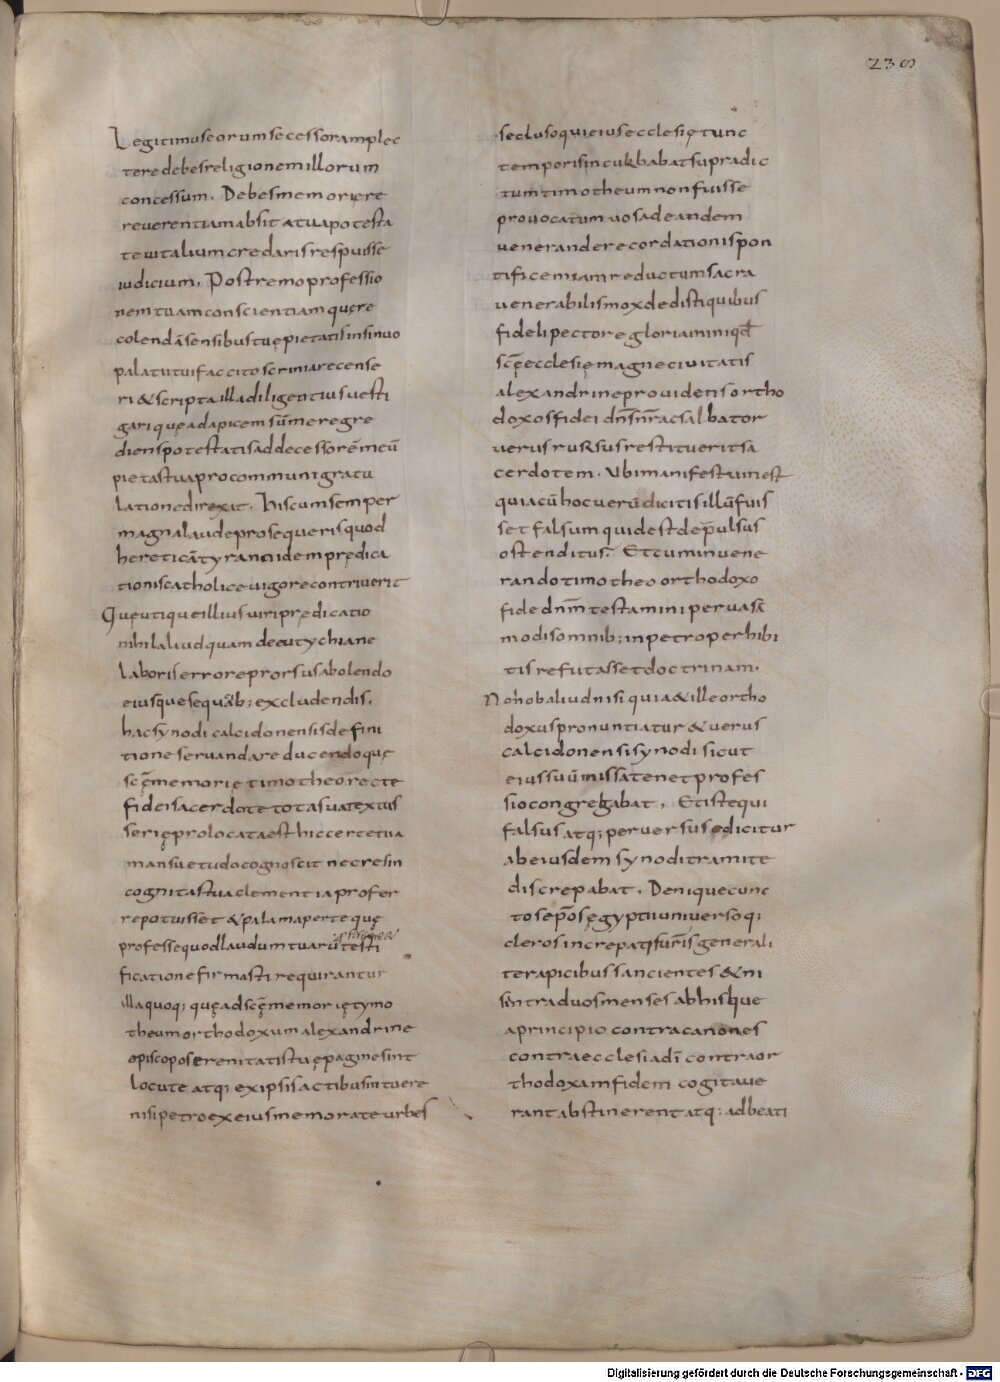 238
Legitimus eorum secessor amplec
tere debes religionem illorum
concessum. Debes memoriẹ re
reverentiam absit a tua potesta
te vitalium credaris respuisse
iudicium. Postremo professio
nem tuam conscientiam quẹre
colendā sensibus tuẹ pietatis insinuo
palatu tui faccito scrinia recense
ri & scripta illa diligentius vesti
gari quẹ ad apicem sūme regre
diens potestatis ad decessorē meū
pietas tua pro communi gratu
latione direxit. his cum semper
magna laude prosequeris quod
hereticā tyrannidem prẹdica
tionis catholice vigore contriverit
Quẹ utique illius viri prẹdicatio
nihil aliud quam de eutychiane
laboris errore prorsus abolendo
eiusque sequāb; excludendis.
hac synodi calcidonensis defini
tione servanda reducendoquẹ
scẹ̄ memoriẹ timotheo recte
fidei sacerdote tota sua textus
seriẹ prolocata est hic certe tua
mansuetudo cognoscit necresin
cognitas tua clementia profer
re potuisset & palam aperte quẹ
professe quod laudum tuarū testi
ficatione firmasti requirantur
illa quoq; quẹ ad scẹ̄ memoriẹ tymo
theum orthodoxum alexandrine
episcopo serenitatis tuẹ pagine sint
locute atq; ex ipsis actibus intuere
nisi petro ex eius memorate urbes
secluso qui eius ecclesiẹ tunc
temporis incubabat supradic
tum timotheum non fuisse
provocatum vos ad eandem
venerande recordationis pon
tificem iam reductum sacra
venerabilis mox dedistis quibus
fideli pectore gloriamini qđ
scẹ̄ ecclesiẹ magne civitatis
alexandrine providens ortho
doxos fidei dn̄s nr̄ ac salbator
verus rursus restituerit sa
cerdotem. Ubi manifestum est
quia cū hoc verū dicitis illū fuis
set falsum qui dest depulsus
ostenditur. Et cum in vene
rando timotheo orthodoxo
fide dn̄m testamini pervasā
modis omnib; in petro perhibi
tis refutasset doctrinam.
Non ob aliud nisi quia & ille ortho
doxus pronuntiatur & verus
calcidonensi synodi sicut
eius suū missa tenet profes
sio congregabat. Et iste qui
falsus atq; perversus edicitur
ab eiusdem synodi tramite
discrepabat. Denique cunc
tos ep̄os ẹgyptii universoq;
cleros increpatis furis generali
ter apicibus sancientes & ni
si intra duos menses ab hisque
a principio contra canones
contra ecclesia dī contra or
thodoxam fidem cogitave
rant abstinerent atq; ad beati